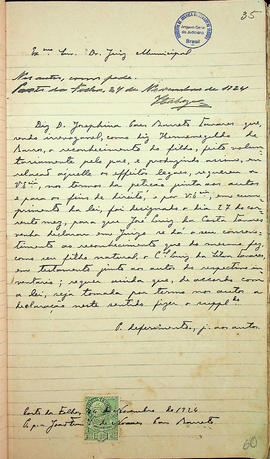 35
Arquivo Geral
do Judiciário
Brasil
Exmo Snr. Dr. Juiz Municipal
Nos autos, como pede.
Porto da Folha, 24 de Novembro de 1924
Diz D. Josephina Paes Barreto Tavares que,
sendo irrevogavel, como diz Hermenegildo de
Barros, o reconhecimento de filho, feito volun-
tariamente pelo pae, e produzindo assim, em
relação áquelle os effeitos legaes, requereu a
V. Sia, nos termos da petição junta aos autos
e para os fins de direito, e por V. Sia, em cum-
primento da lei, foi designado o dia 27 do cor-
rente mez, para que José Luiz da Costa Tavares
venha declarar em Juizo se dá o seu consenti-
mento ao reconhecimento que do mesmo fez,
como seu filho natural, o Cel. Luiz da Silva Tavares,
em testamento junto aos autos do respectivo in-
ventario; requer ainda que, de accordo com
a lei, seja tomada por termo nos autos a
declaração neste sentido fizer o suppdo
P. deferimento, j. aos autos
Porto da Folha, 24 de Novembro de 1924
de Moraes Paes Barreto
60